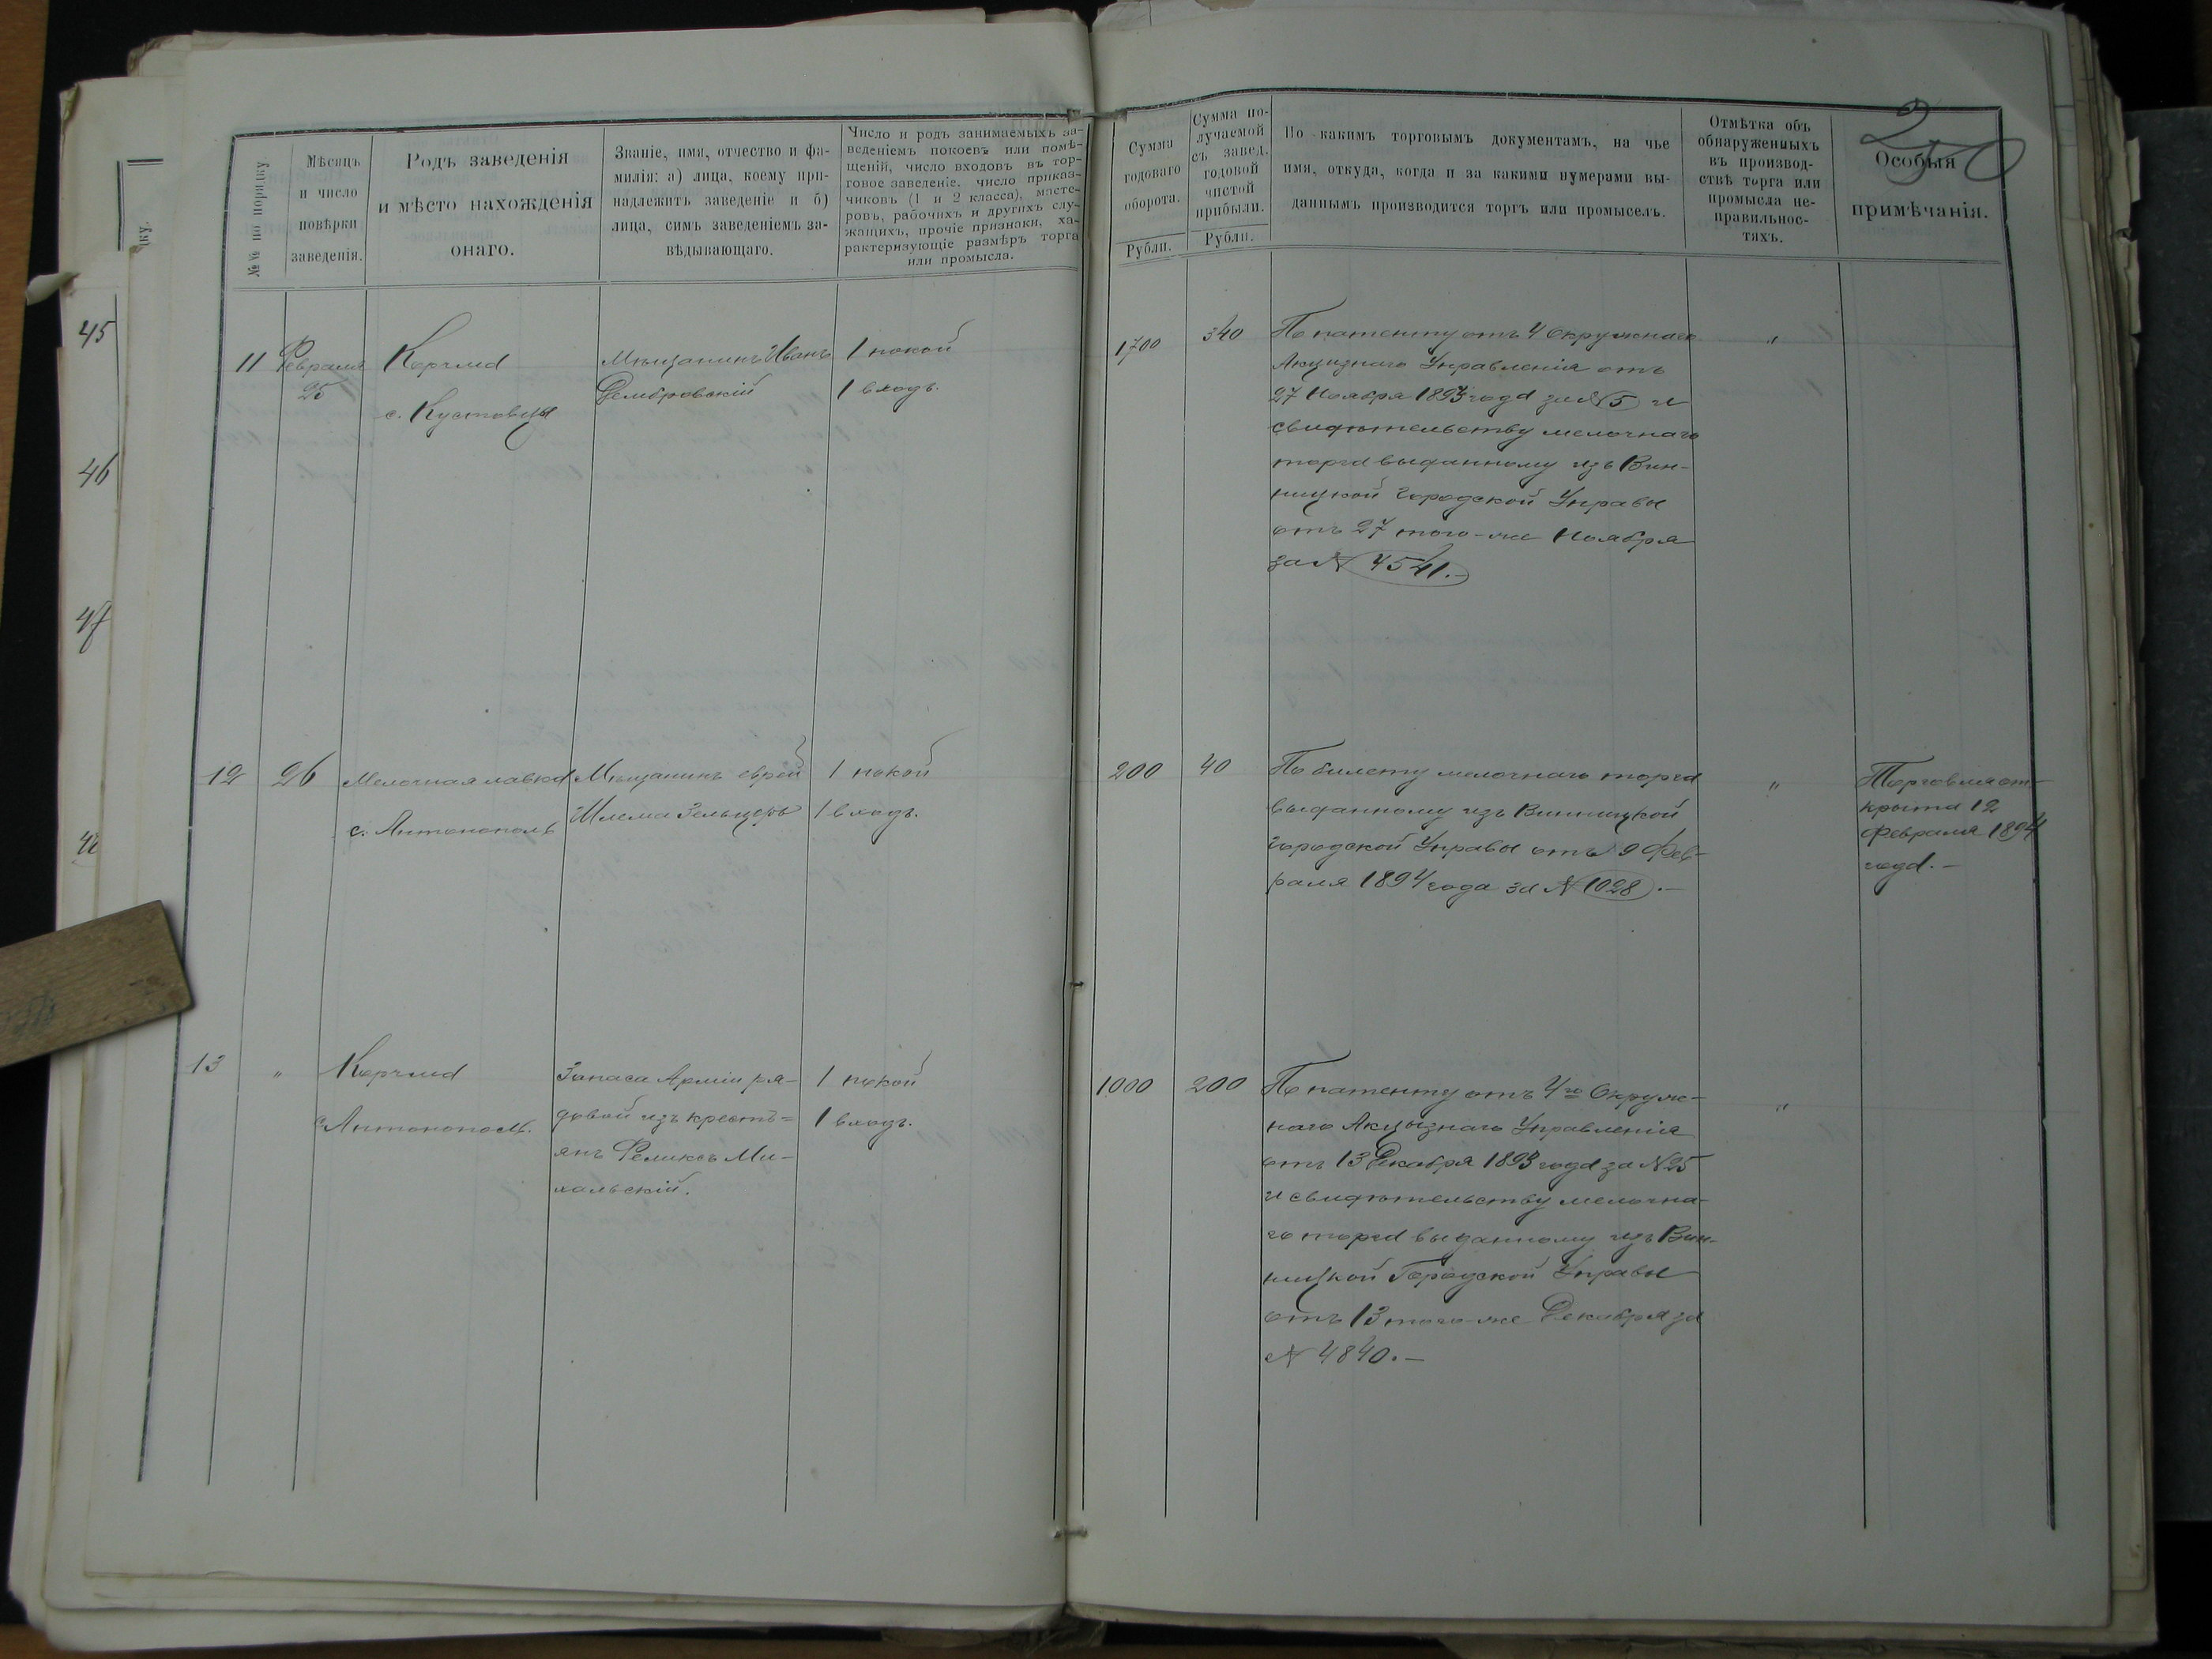 №№ по порядку
Мѣсяцъ
и число
повѣрки
заведенія.
Родъ заведенія
и мѣсто нахожденія
онаго.
Званіе, имя, отчество и фа-
милія: а) лица, коему при-
надлежитъ заведеніе и б)
лица, симъ заведеніемъ за-
вѣдывающаго.
Число и родъ занимаемыхъ за-
веденіемъ покоевъ или помѣ-
щеній, число входовъ въ тор-
говое заведеніе, число приказ-
чиковъ (1 и 2 класса), масте-
ровъ, рабочихъ и другихъ слу-
жащихъ, прочіе признаки, ха-
рактеризующіе размѣръ торга
или промысла.
Сумма
годоваго
оборота.
Рубли.
Сумма по-
лучаемой
съ завед.
годовой
чистой
прибыли.
Рубли.
По какимъ торговымъ документамъ, на чье
имя, откуда, когда и за какими нумерами вы-
даннымъ производится торгъ или промыселъ.
Отмѣтка объ
обнаруженныхъ
въ производ-
ствѣ торга или
промысла не-
правильнос-
тяхъ.
Особыя
примѣчанія.
45
46
47
11
Февраля
25
Корчма
с. Кустовцы
Мѣщанинъ Иванъ
1 покой
1 входъ.
1700
340
По патенту отъ 4 Окружнаго
Акцизнаго Управленія отъ
27 Ноября 1893 года за №5 и
свидѣтельству мелочнаго
торга выданному изъ Вин-
ницкой Городской Управы
отъ 27 того-же Ноября
за № 4541.-
"
12
26
Мелочная лавка
с. Антонополь
Мѣщанинъ еврей
Шлема Зельцеръ
1 покой
1 входъ.
200
40
По билету мелочнаго торга
выданному изъ Винницкой
Городской Управы отъ 9 Фев-
раля 1894 года за № 1028.-
"
Торговля от-
крыта 12
Февраля 1894
года.-
13
"
Корчма
с. Антонополь.
Запаса Арміи ря-
довой изъ кресть-
янъ Феликсъ Ми-
хальскій.
1 покой
1 входъ.
1000
200
По патенту отъ 4го Окруж-
наго Акцизнаго Управленія
отъ 13 Декабря 1893 года за №25
и свидѣтельству мелочна-
го торга выданному изъ Вин-
ницкой Городской Управы
отъ 13 того-же Декабря за
№ 4840.-
"